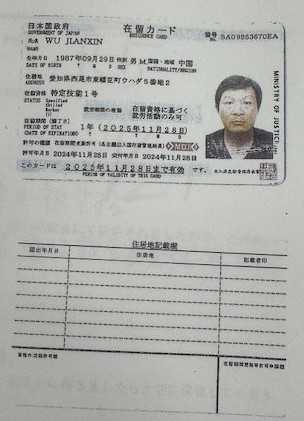 日本国政府 在留カード 番号
GOVERNMENT OF JAPAN RESIDENCE CARD
氏名 WU JIANXIN
NAME
生年月日 1987年09月29日 性別 男 M. 国籍・地域 中国
DATE OF BIRTH Y M D SEX NATIONALITY/REGION
住居地 愛知県西尾市
ADDRESS
在留資格 特定技能1号
STATUS Specified
Skilled
Worker
就労制限の有無 在留資格に基づく
就労活動のみ可
在留期間(満了日)
PERIOD OF STAY 1年(2025年11月28日)
(DATE OF EXPIRATION) Y M D
許可の種類 在留期間更新許可 MOJ
許可年月日 2024年11月25日 交付年月日 2024年11月25日
このカードは 2025年11月28日まで有効 です。
PERIOD OF VALIDITY OF THIS CARD
MINISTRY OF JUSTICE
住居地記載欄
届出年月日 住居地 記載者印